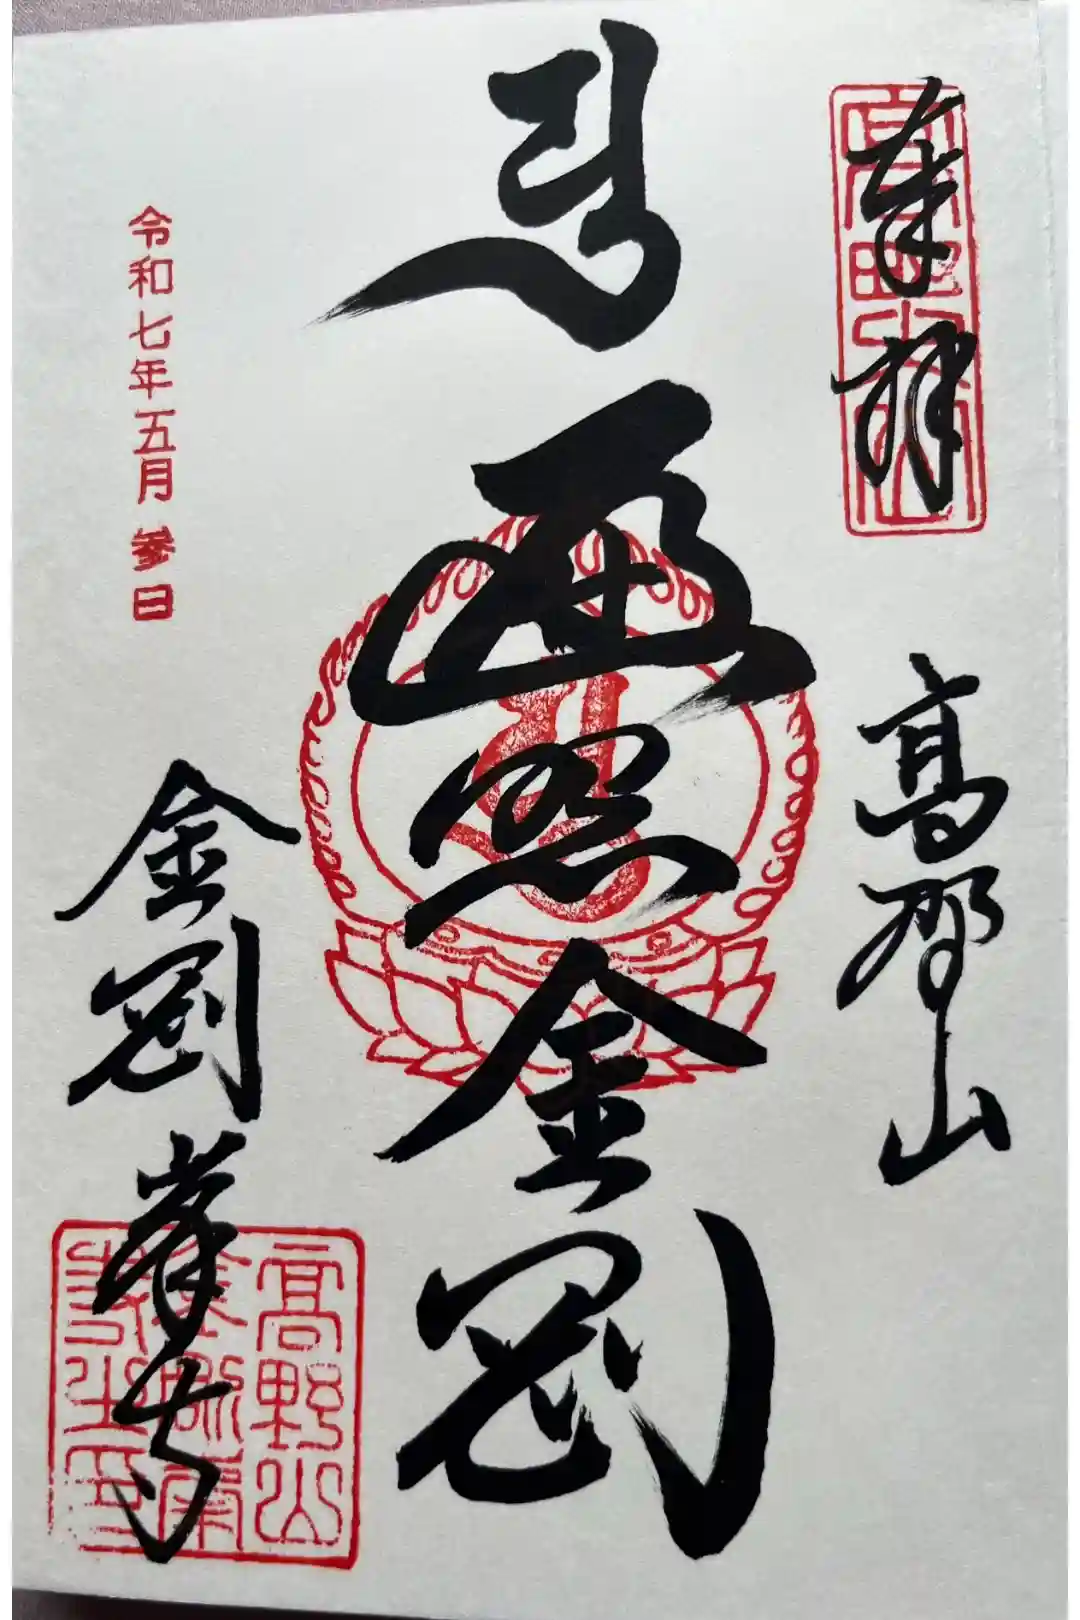 奉拝
高野山
遍照金剛
令和七年五月参日
金剛峯寺
高野山
金剛峯
寺之印